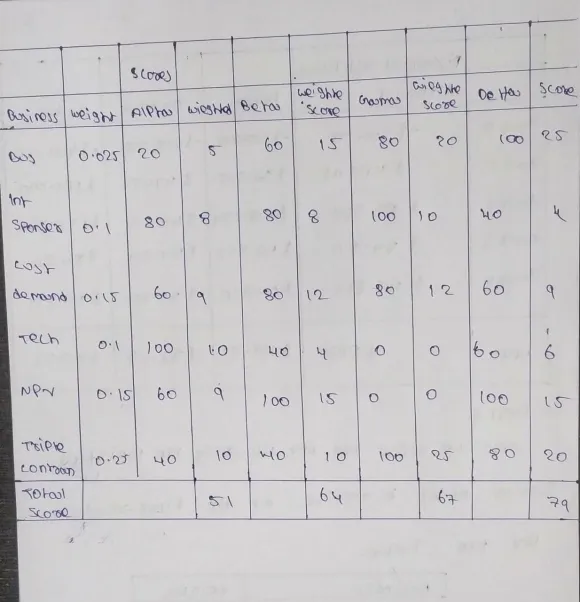 Scores
Business weight Alpha wieghted Beta weighte score Gamma wieghte score Delta Score
Bus 0.025 20 5 60 15 80 20 100 25
Int sponser 0.1 80 8 80 8 100 10 40 4
cost demand 0.15 60 9 80 12 80 12 60 9
Tech 0.1 100 10 40 4 0 0 60 6
NPV 0.15 60 9 100 15 0 0 100 15
Triple 0.25 40 10 40 10 100 25 80 20
Total score 51 64 67 79